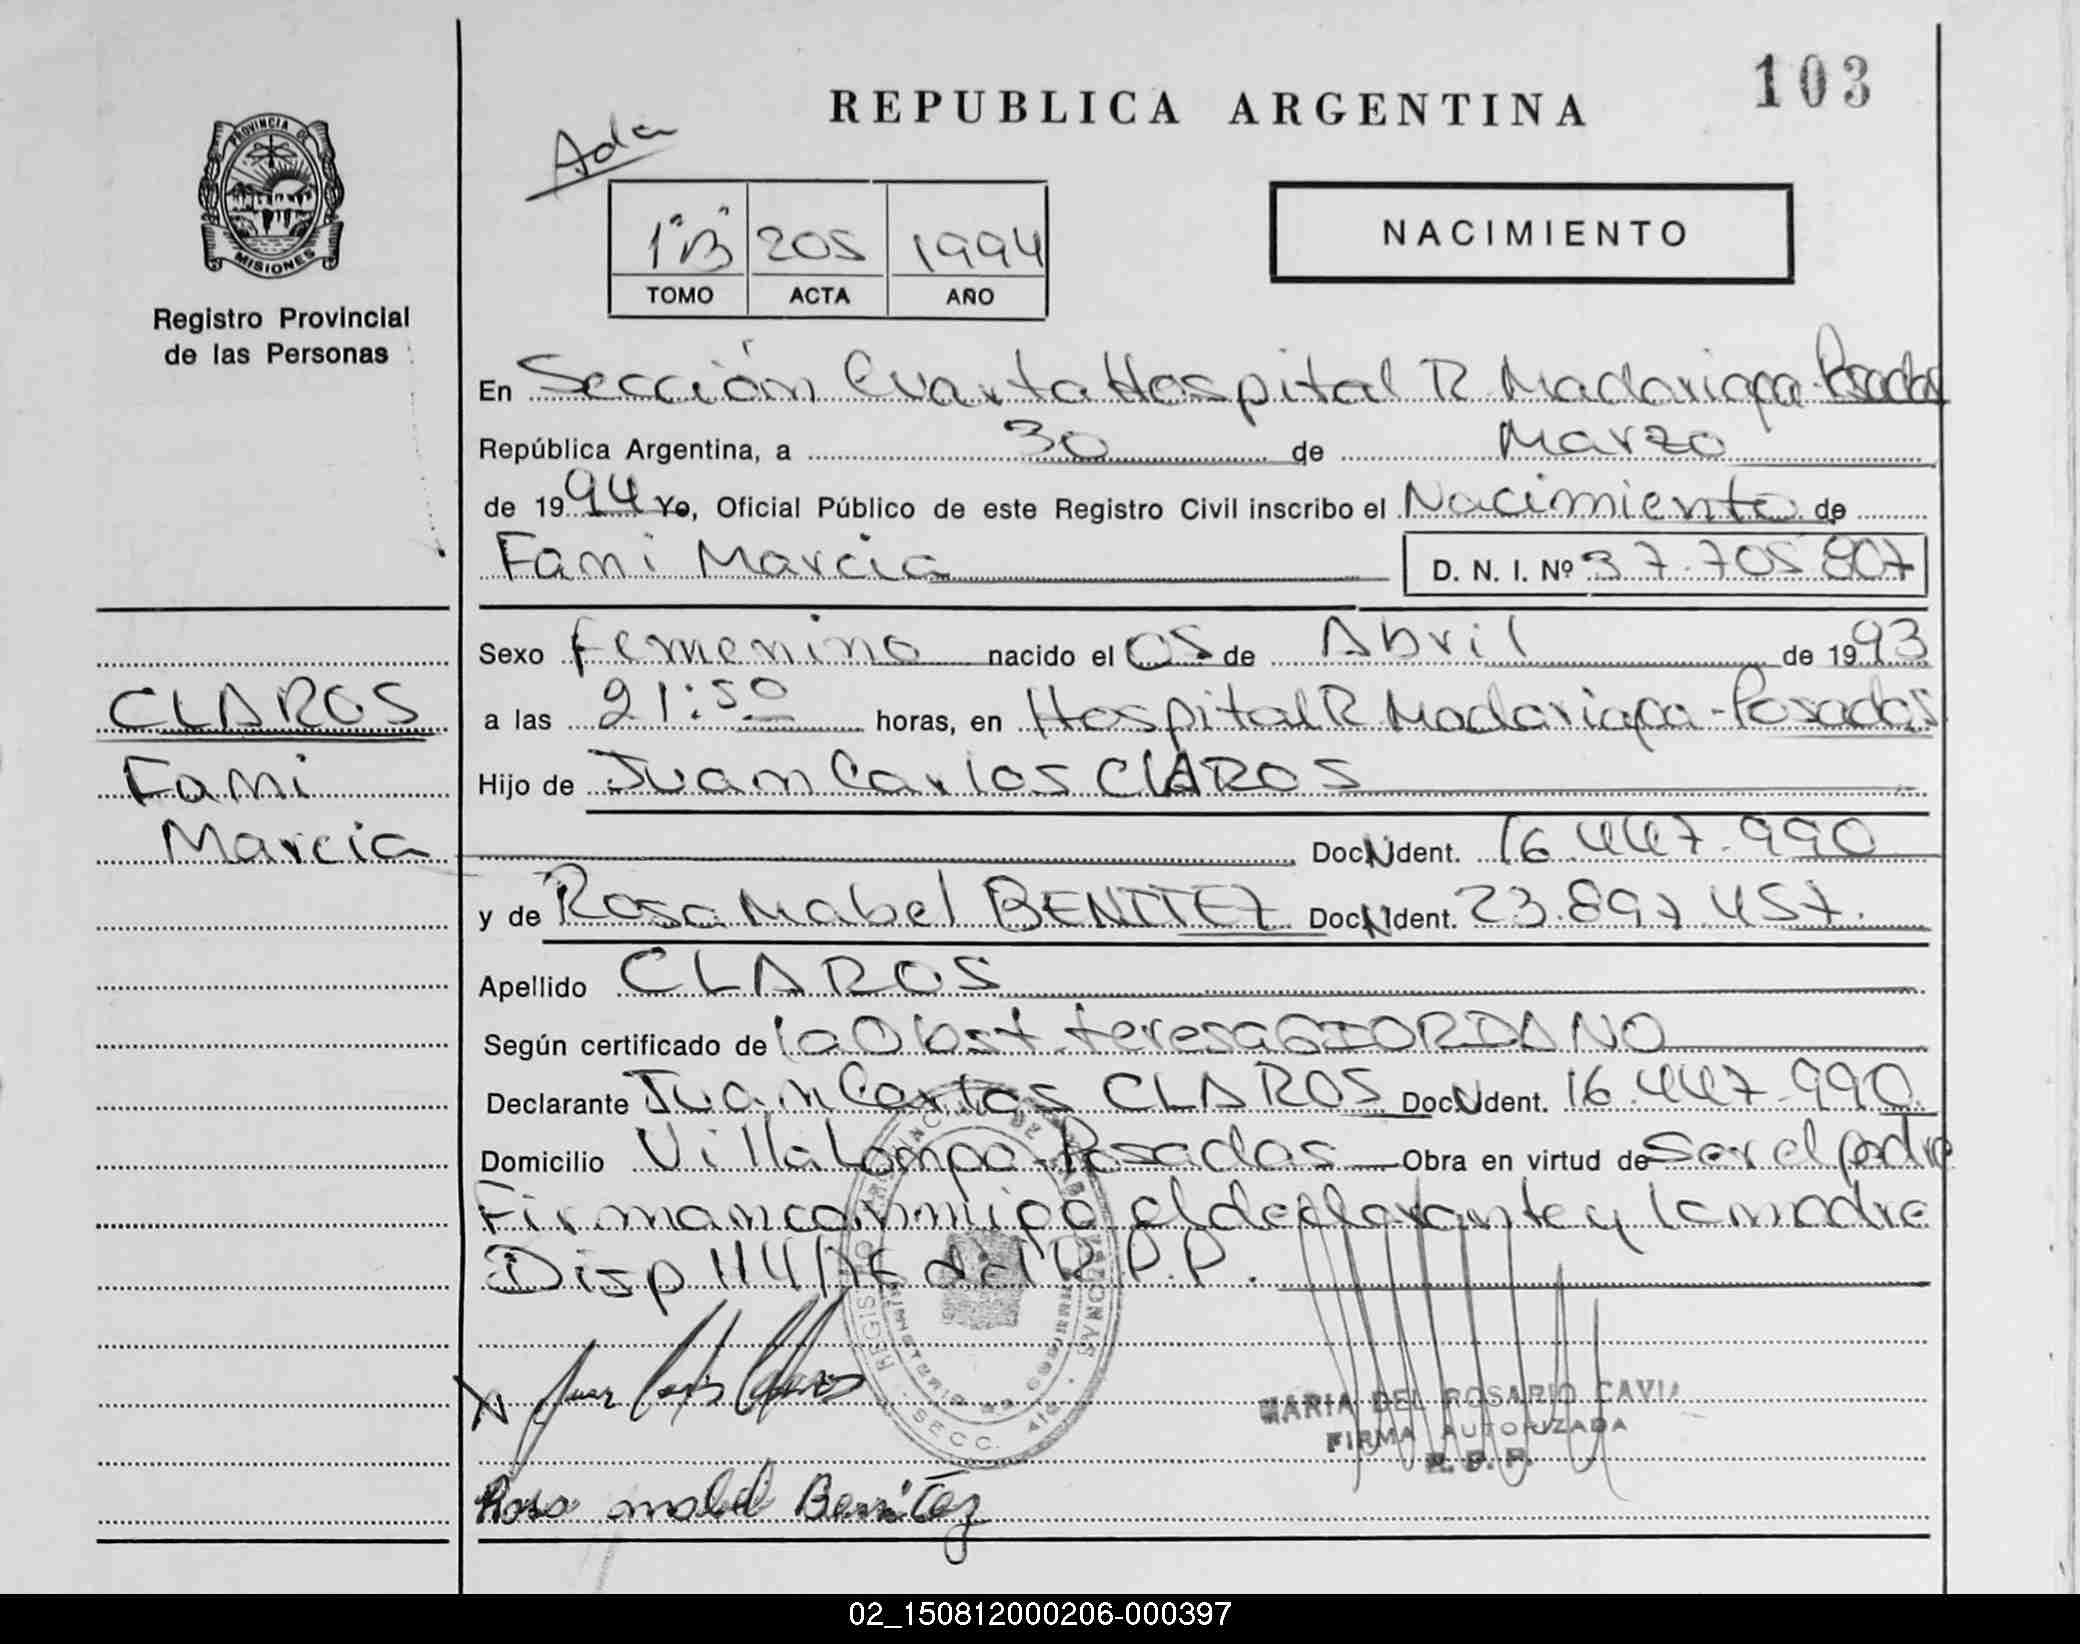 103
REPUBLICA ARGENTINA
Ada
PROVINCIA DE
MISIONES
Registro Provincial
de las Personas
1º"B" 205 1994
TOMO ACTA AÑO
NACIMIENTO
En Sección Cuarta Hospital R Madariaga-Posadas
República Argentina, a 30 de Marzo
de 1994 Yo, Oficial Público de este Registro Civil inscribo el Nacimiento de
Fani Marcia D. N. I. Nº 37.705.807
Sexo femenino nacido el 05 de Abril de 1993
a las 21:50 horas, en Hospital R Madariaga-Posadas
Hijo de Juan Carlos CLAROS
Doc Ident. 16.447.990
y de Rosa Mabel BENITEZ Doc Ident. 23.897.457.
Apellido CLAROS
Según certificado de la Obst. teresa GIORDANO
Declarante Juan Carlos CLAROS Doc Ident. 16.447.990
Domicilio Villa Lanpa-Posadas Obra en virtud de Ser el padre
Firman conmigo el declarante y la madre
Disp 114/ del R.P.P.
CLAROS
Fani
Marcia
Juan Carlos Claros
SECC. 4ta
MARIA DEL ROSARIO CAVIA
FIRMA AUTORIZADA
R. P. P.
Rosa mabel Benitez
02_150812000206-000397